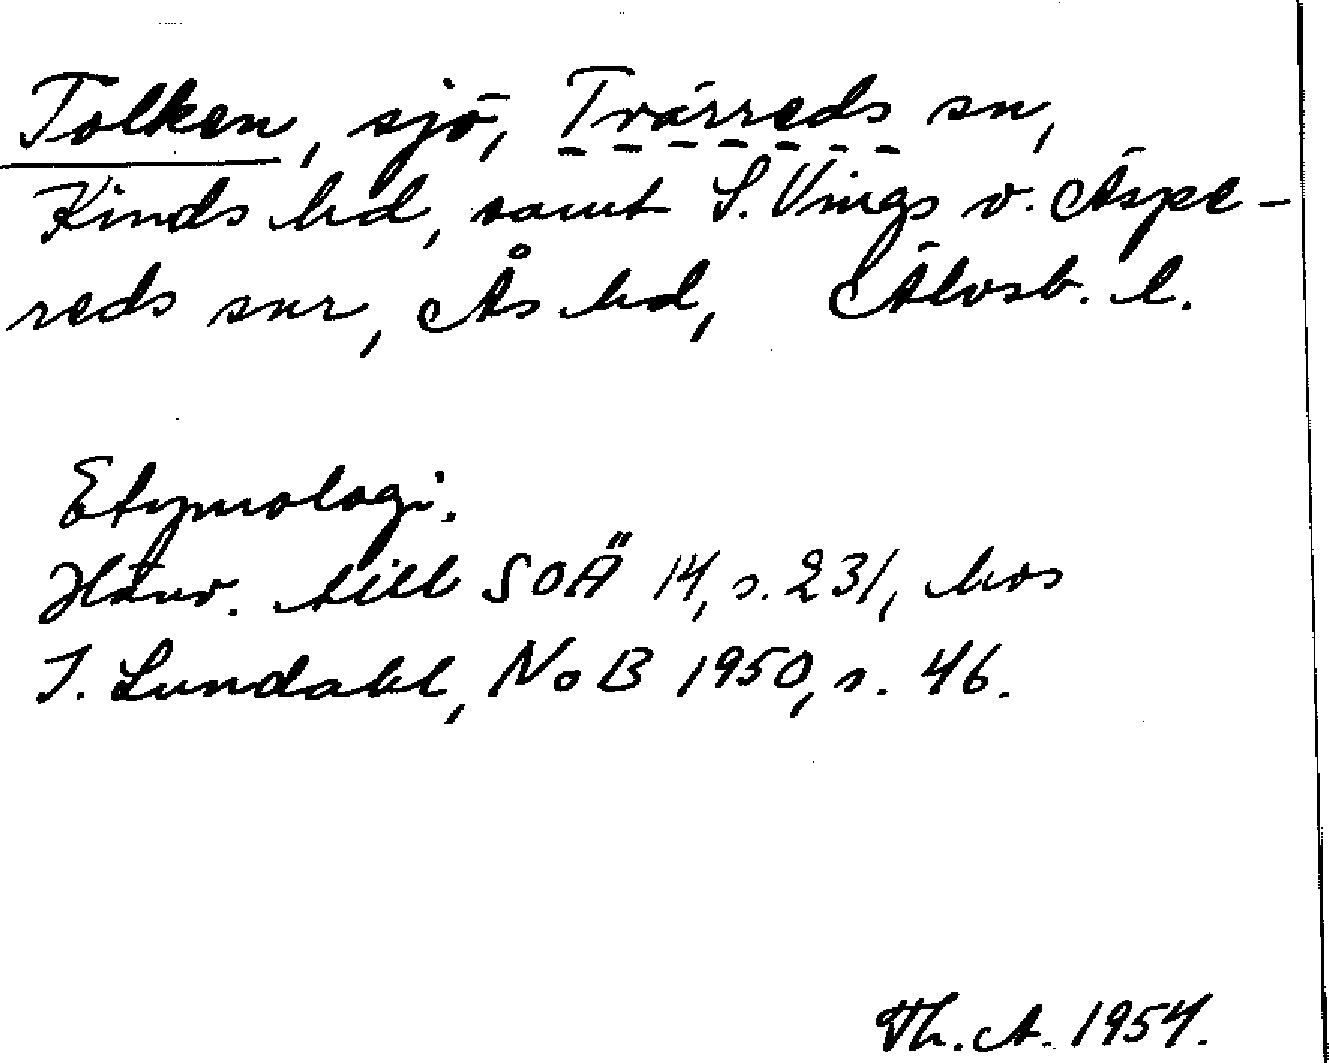 Tolken, sjö, Tvärreds sn,
Kinds hd, samt S. Vings o. Äspe-
reds snr, Ås hd, Älvsb. l.
Etymologi.
Hänv. till SOÄ 14, s. 231, hos
I. Lundahl, NoB 1950, s. 46.
Th. A. 1954.